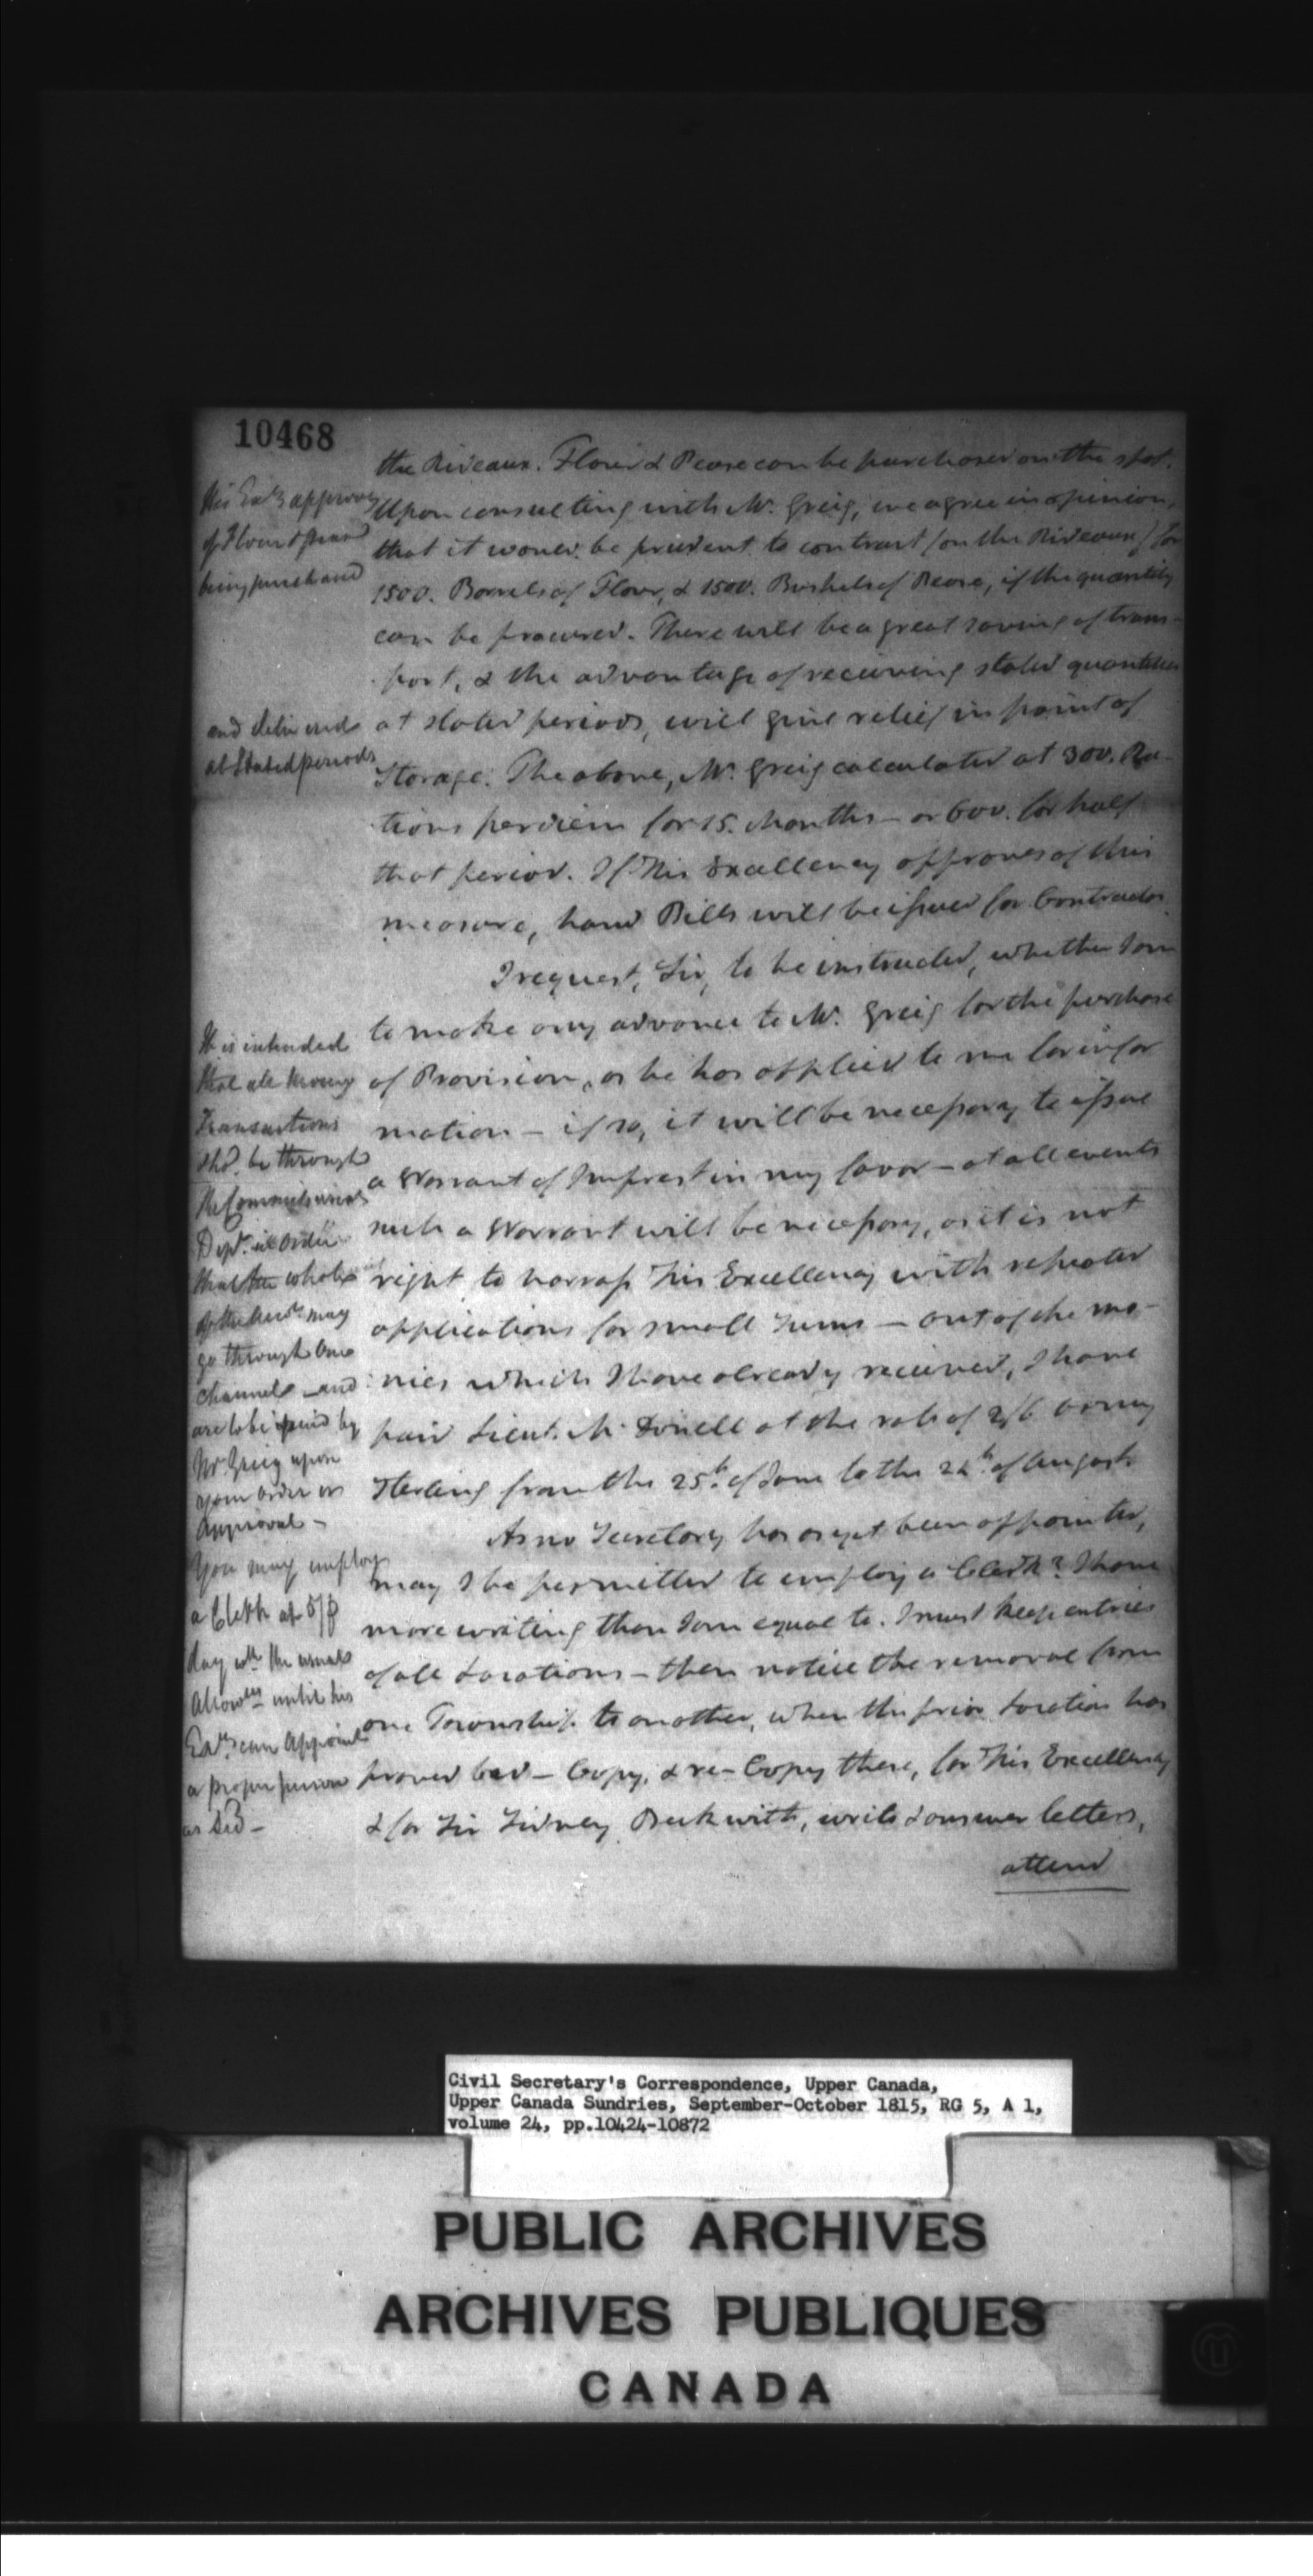 10468
the Rideaux. Flour & Pease can be purchased on the spot.
Upon consulting with Mr. Greig, we agree in opinion,
that it would be prudent to contract (on the Rideaux) for
1500. Barrels of Flour, & 1500. Bushels of Pease, if the quantity
can be procured. There will be a great saving of trans-
port, & the advantage of receiving stated quantities
at stated periods, will give relief in point of
Storage. The above, Mr. Greig calculated at 300. Ra-
tions per diem for 15. Months – or 600. for half
that period. If His Excellency approves of this
measure, hand Bills will be issued for Contractors.
I request, Sir, to be instructed, whether I am
to make any advance to Mr. Greig for the purchase
of Provision, as he has applied to me for infor
mation – if so, it will be necessary to issue
a Warrant of Imprest in my favor – at all events
such a Warrant will be necessary, as it is not
right to harrass His Excellency with repeated
applications for small sums – out of the mo-
nies which I have already received, I have
paid Lieut. McDonell at the rate of 2/6 army
Sterling from the 25th. of June to the 24th. of August
As no Secretary has as yet been appointed,
may I be permitted to employ a Clerk? I have
more writing than I am equal to. I must keep entries
of all Locations – then notice the removal from
one Township to another, when the prior Location has
proved bad – Copy, & re-Copy these, for His Excellency
& for Sir Sidney Beckwith, write & answer letters,
attend
His Excy approves
of Flour & pease
being purchased
and delivered
at Stated periods
It is intended
that all money
Transactions
shd. be through
the Commissariat
Dept. in order
that the whole
of the may
go through One
channel – and
are to be paid by
Mr Greig upon
your order or
Approval –
You may employ
a Clerk at 5/ p
day wth the usual
Allowces until his
Excy can Appoint
a proper person
as Sec –
Civil Secretary's Correspondence, Upper Canada,
Upper Canada Sundries, September-October 1815, RG 5, A 1,
volume 24, pp.10424-10872
PUBLIC ARCHIVES
ARCHIVES PUBLIQUES
CANADA